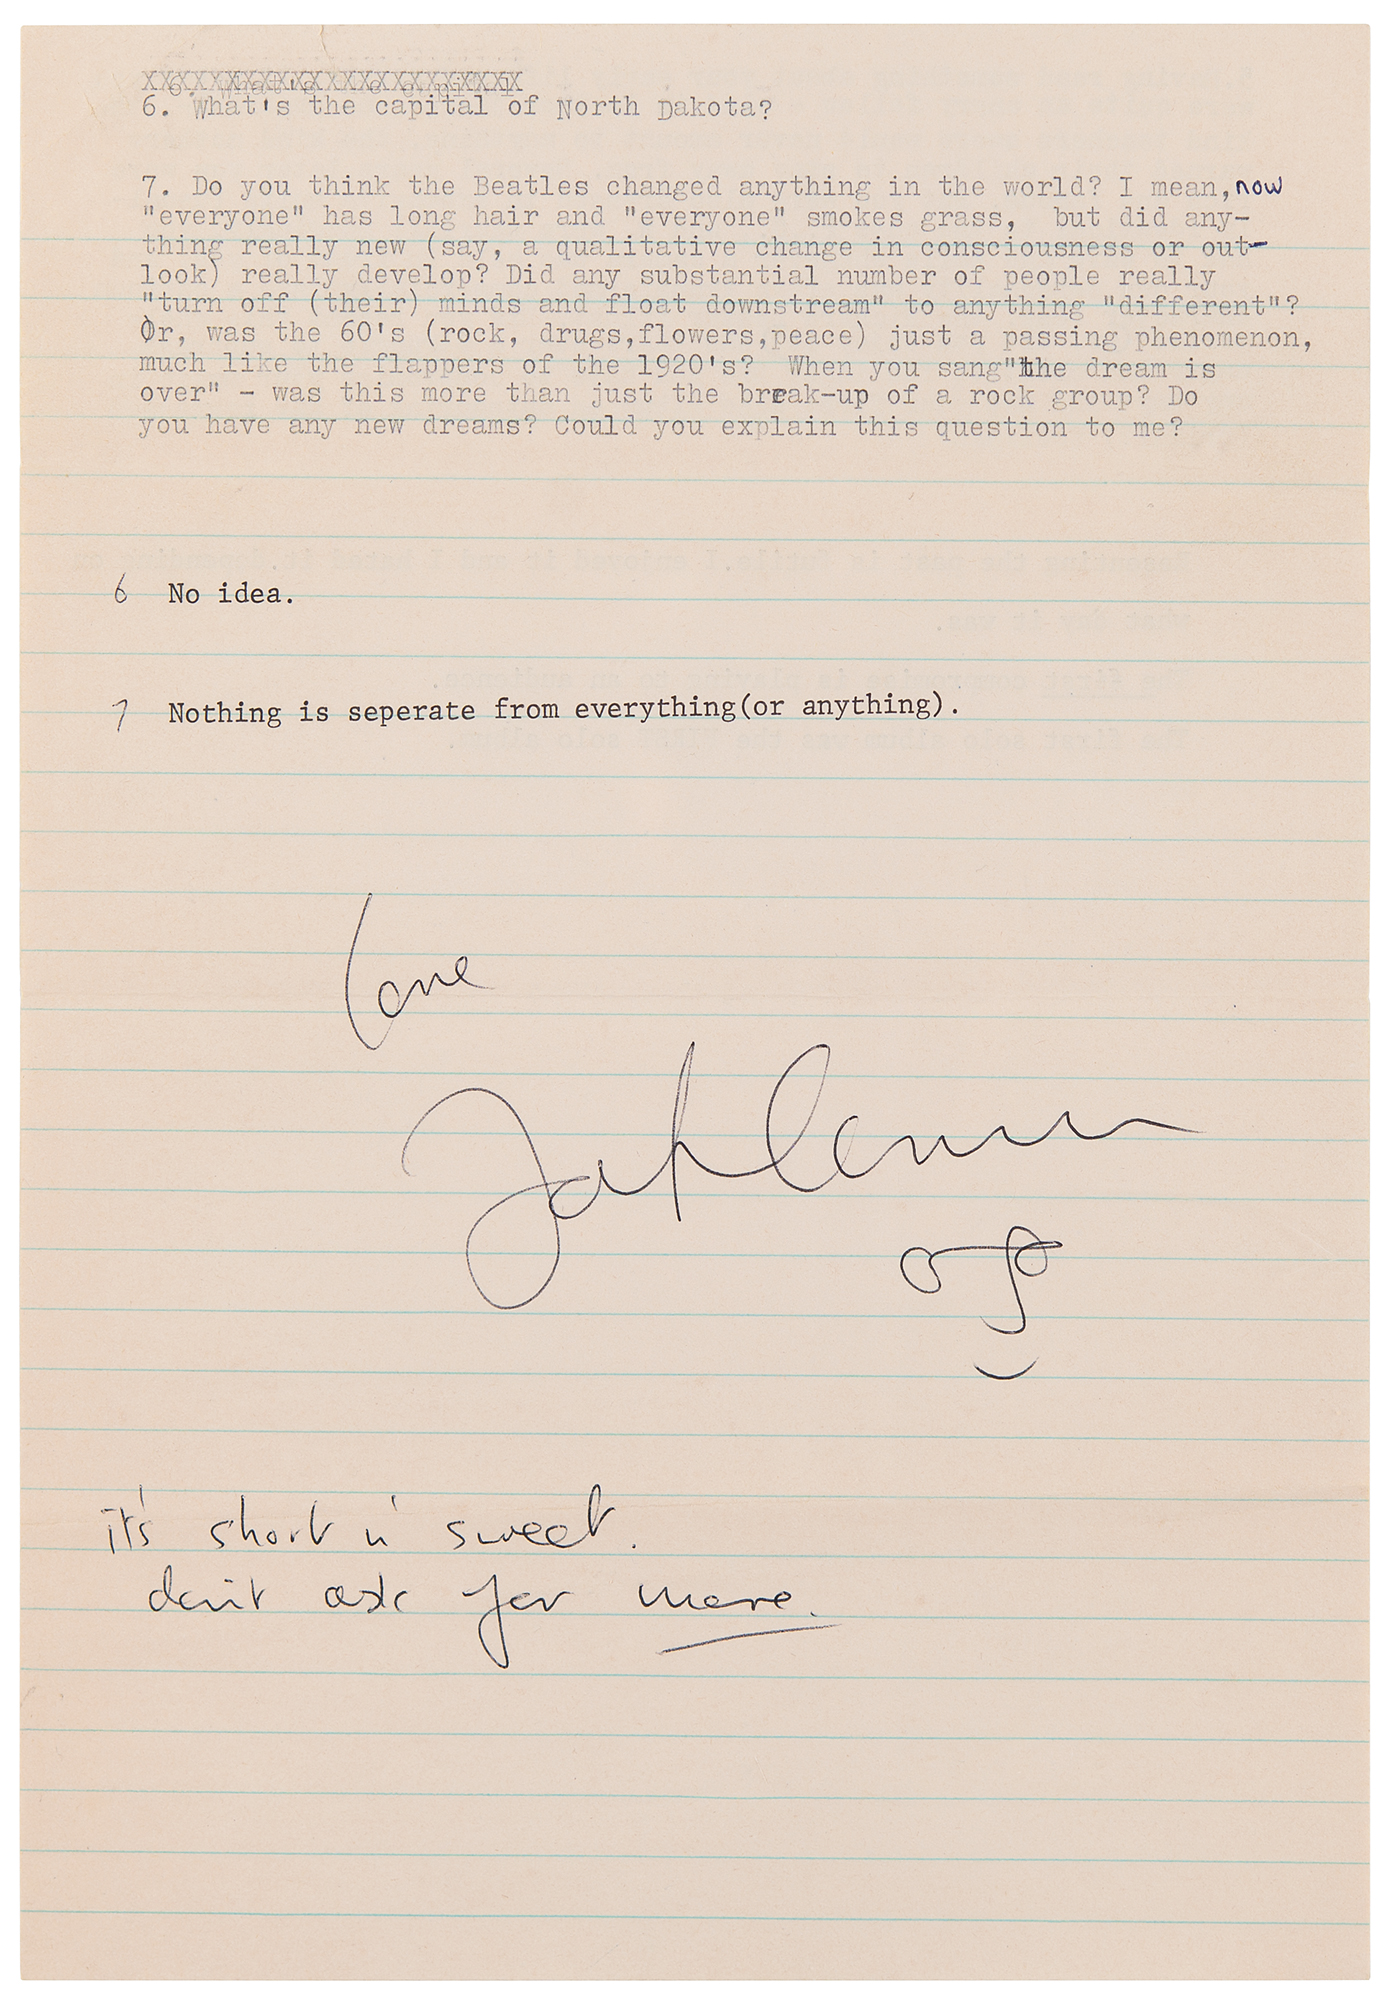 6. What's the capital
6. What's the capital of North Dakota?
7. Do you think the Beatles changed anything in the world? I mean, now
"everyone" has long hair and "everyone" smokes grass, but did any-
thing really new (say, a qualitative change in consciousness or out-
look) really develop? Did any substantial number of people really
"turn off (their) minds and float downstream" to anything "different"?
Or, was the 60's (rock, drugs,flowers,peace) just a passing phenomenon,
much like the flappers of the 1920's? When you sang"the dream is
over" - was this more than just the break-up of a rock group? Do
you have any new dreams? Could you explain this question to me?
6 No idea.
7 Nothing is seperate from everything(or anything).
love
John Lennon
it's short n' sweet.
don't ask for more.